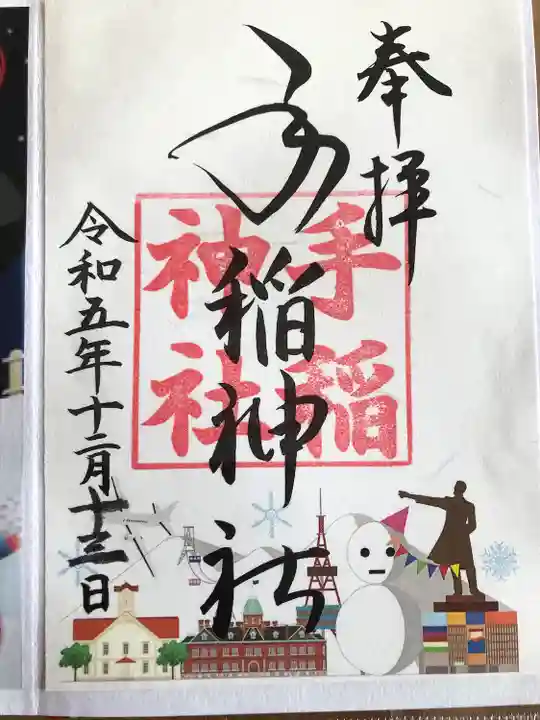 奉拝
手稲神社
手稲
神社
令和五年十二月十三日